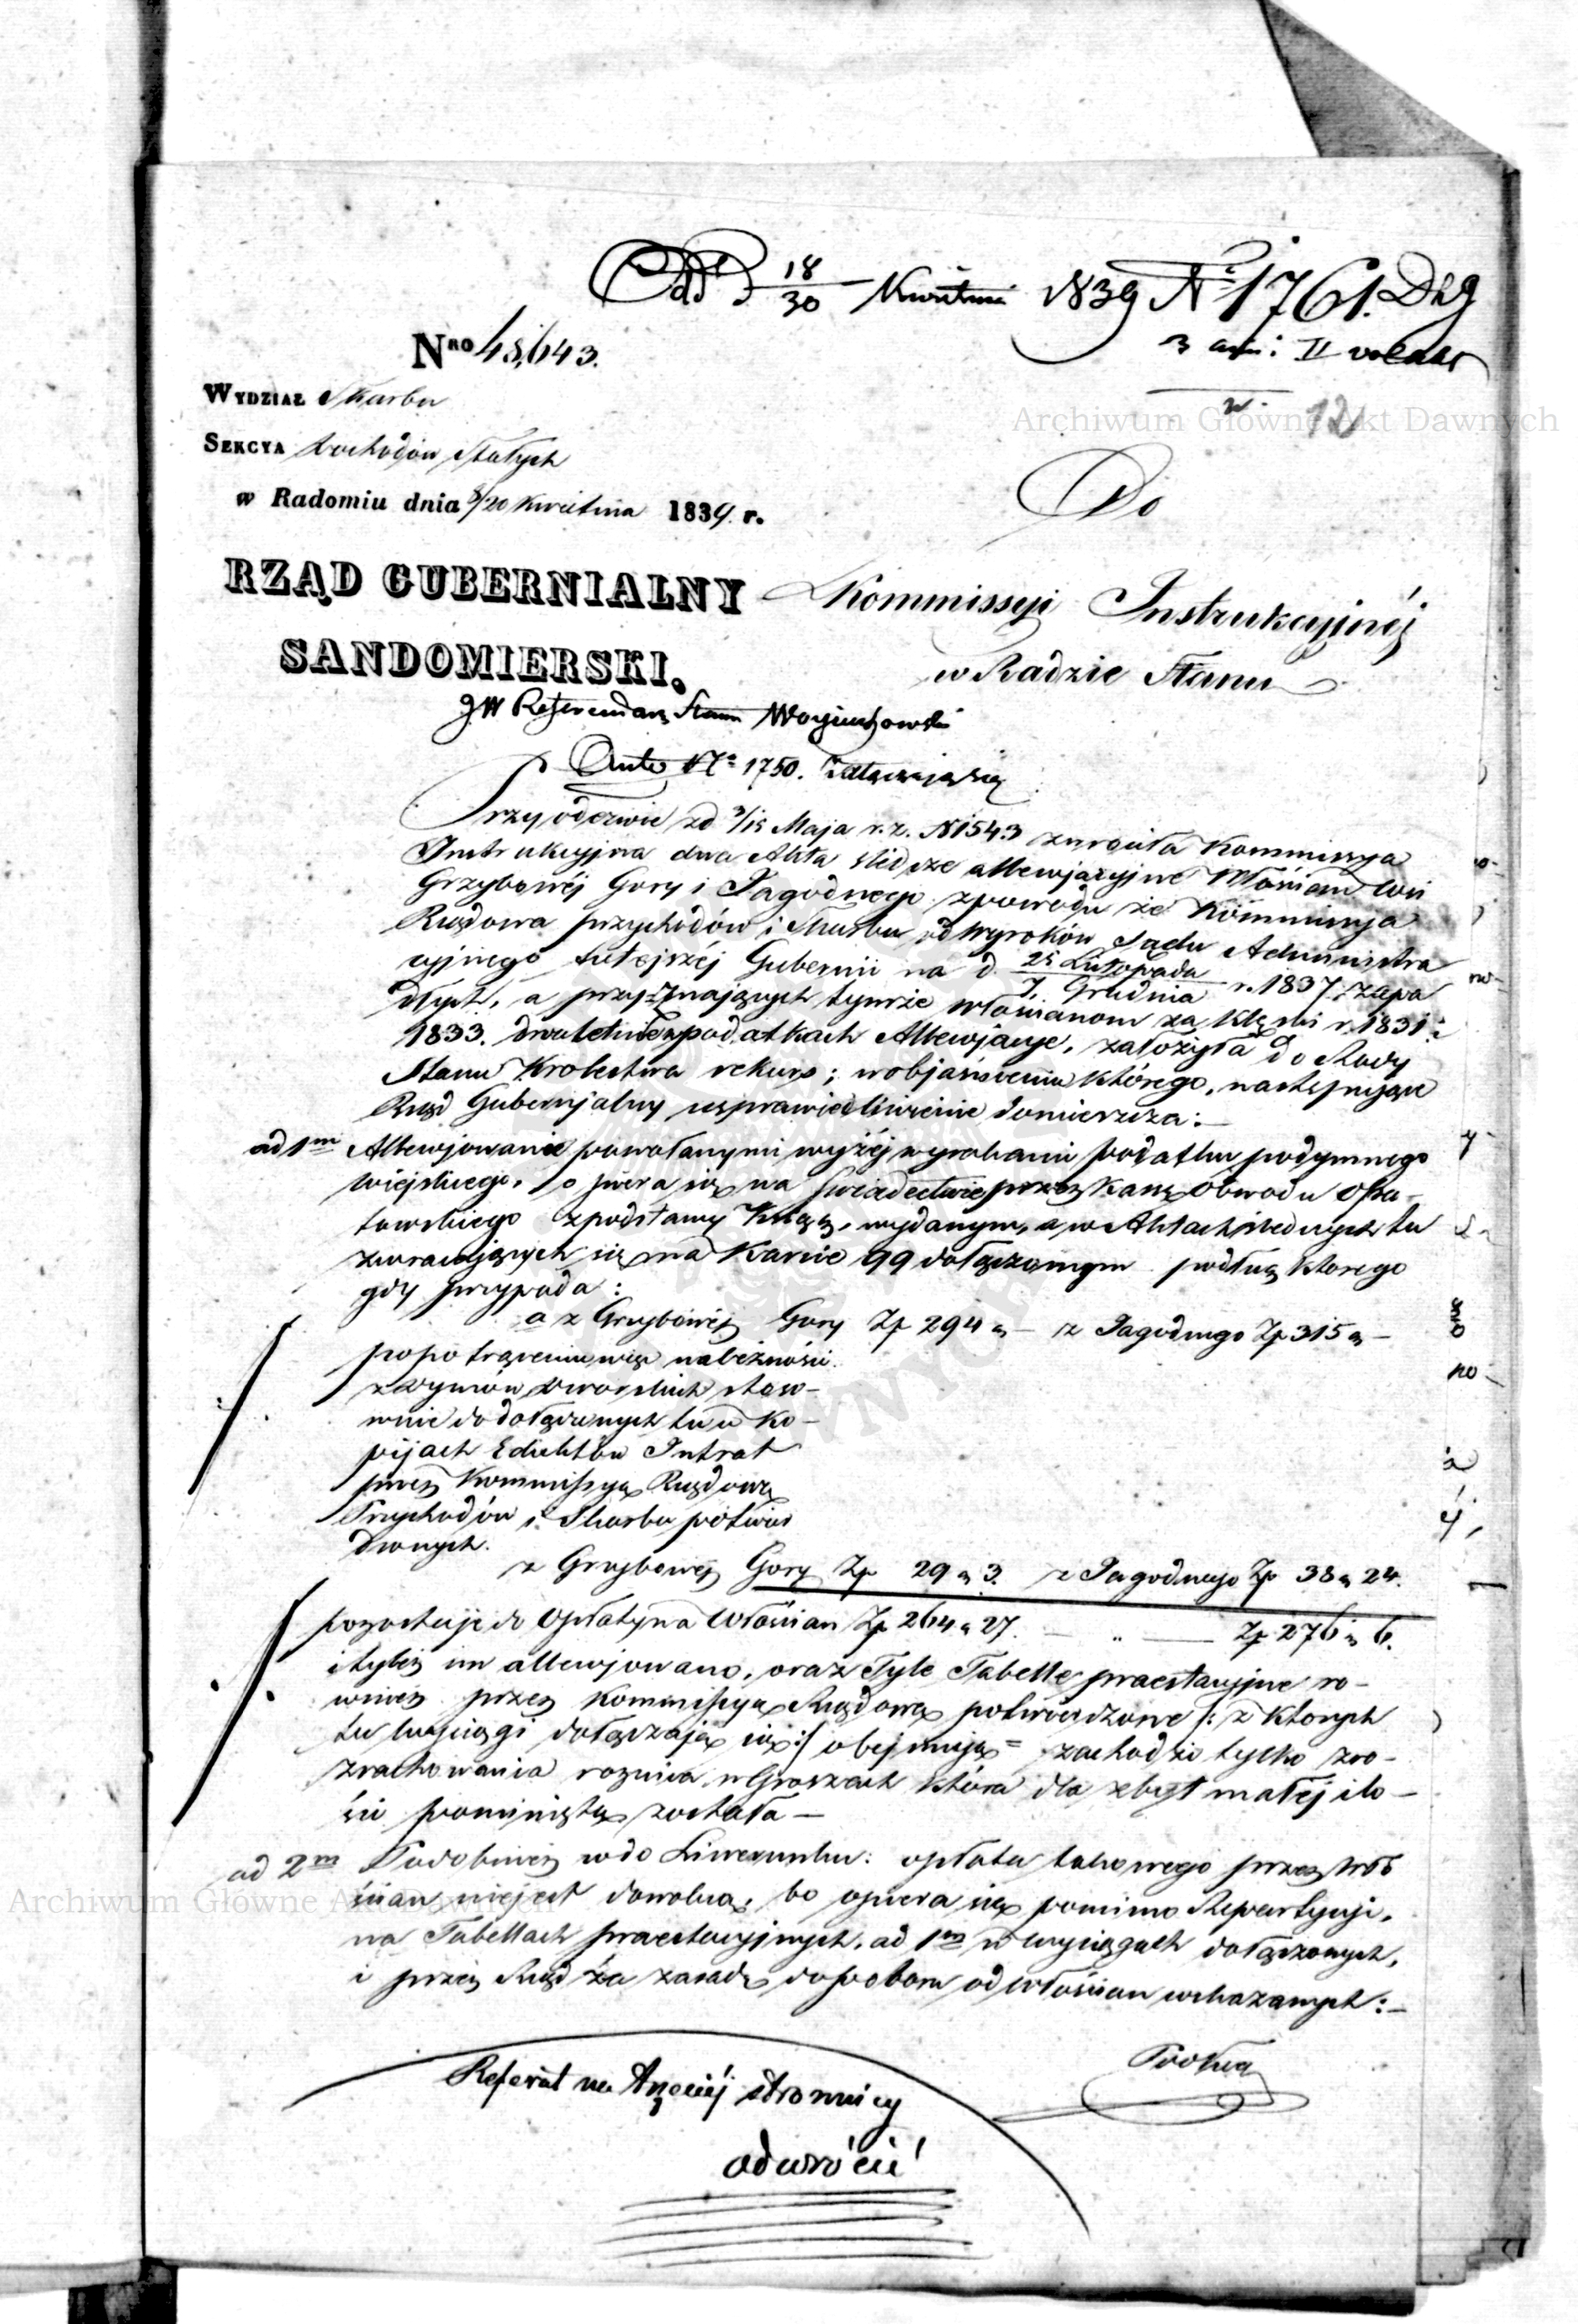 18/30 Kwietnia 1839 Nº 1761. Dkg
3 II
Nro 48,643.
Wydział Skarbu
12
Archiwum Główne Akt Dawnych
Sekcya Dochodów Stałych
w Radomiu dnia 8/20 Kwietnia 1839. r.
Do
RZĄD GUBERNIALNY
SANDOMIERSKI.
Kommissyi Instrukcyjnéj
w Radzie Stanu
JW Referendarz Stanu Woyciechowski
Ante Nº 1750. Załączają się
Przy odezwie zd 3/15 Maja r.z. N 1543 zwróciła Kommissya
Instrukcyjna dwa Akta śledcze allewjacyjne Włościan wsi
Grzybowéj Góry i Jagodnego, zpowodu że Kommissya
Rządowa przychodów i Skarbu od Wyroków Sądu Administra
cyjnego tutejszéj Gubernii na d. 25 Listopada / 7 Grudnia r. 1837 zapa
dłych, a przyznających tymże włościanom za klęski r. 1831 i
1833. dwuletnie w podatkach Allewjacye, założyła do Rady
Stanu Królestwa rekurs; w objaśnieniu którego, następujące
Rząd Gubernjalny usprawiedliwienie domieszcza:
ad 1m Allewjowanie powołanymi wyżéj wyrokami podatku podymnego
wiejskiego, opiera się na świadectwie przez Kassę Obwodu Opa-
towskiego zpodstawy Xiąg, wydanym, a w Aktach śledczych tu
zwracających się na Karcie 99 dołączonym podług którego
gdy przypada:
a z Grzybowéj Góry Zp 294 g — z Jagodnego Zp 315 g —
po potrąceniu więc należności
z dymów dworskich stoso-
wnie do dołączonych tu w Ko-
pijach Eduktów Intrat
przez Kommissyą Rządową
Przychodów i Skarbu potwier
dzonych.
z Grzybowéj Góry Zp 29 g 3. z Jagodnego Zp 38 g 24.
pozostaje do Opłaty na Włościan Zp 264 g 27. — „ — Zp 276 g 6.
i tyleż im allewjowano, oraz Tyle Tabelle praestacyjne ró-
wnież przez Kommissyą Rządową potwierdzone /: z których
tu wyciągi dołączają się :/ obejmują = zachodzi tylko zro-
zrachowania różnica w Groszach która dla zbyt małéj ilo-
ści pominiętą została —
ad 2m Podobnież w do Liwerunku: opłata takowego przez Wło
ścian niejest dowolną, bo opiera się pomimo Repartycyi,
na Tabellach praestacyjnych, ad 1m w wyciągach dołączonych,
i przez Rząd za zasadę do poboru od Włościan wskazanych: —
Podług
Referat na trzeciéj stronnicy
odwrócić
Archiwum Główne Akt Dawnych